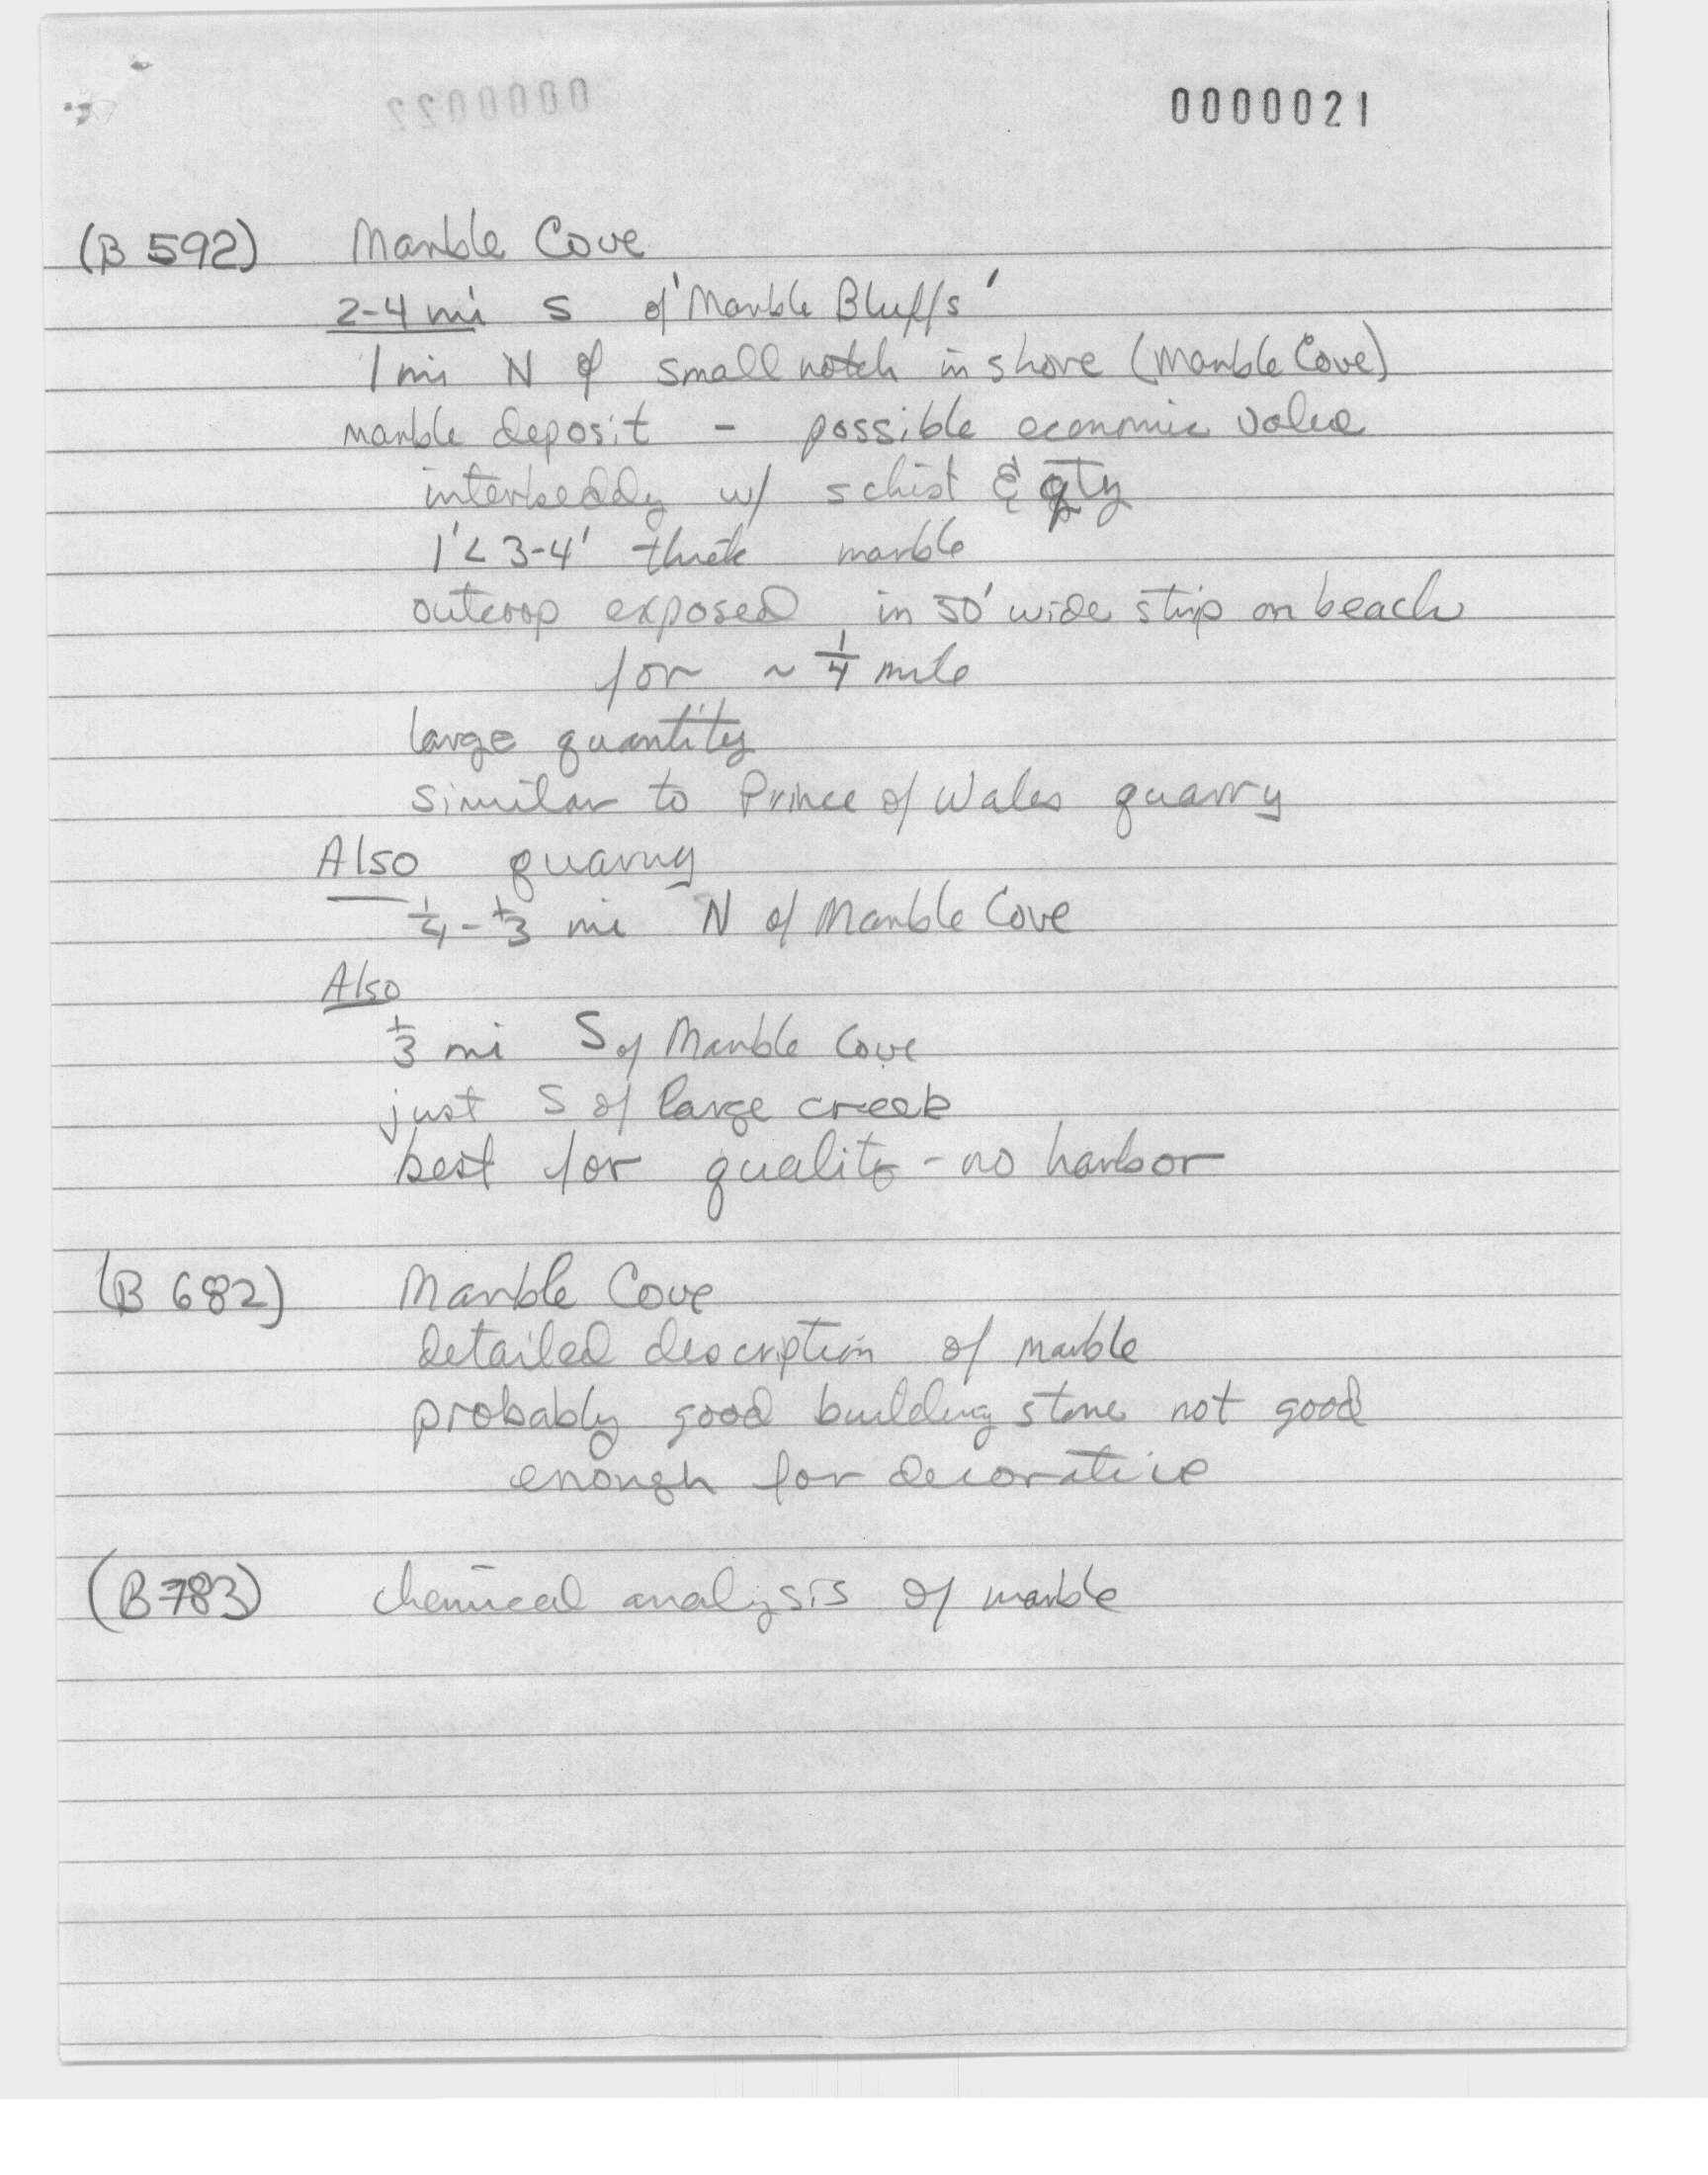 0000022
0000021
(B 592) Marble Cove
2-4 mi S of 'Marble Bluffs'
1 mi N of small notch in shore (Marble Cove)
marble deposit - possible economic value
interbeddg w/ schist & qty
1' < 3-4' thick marble
outcrop exposed in 50' wide strip on beach
for ~ 1/4 mile
large quantity
similar to Prince of Wales quarry
Also quarry
1/4 - 1/3 mi N of Marble Cove
Also
1/3 mi S of Marble Cove
just S of large creek
best for quality - no harbor
(B 682) Marble Cove
detailed description of marble
probably good building stone not good
enough for decorative
(B 783) chemical analysis of marble